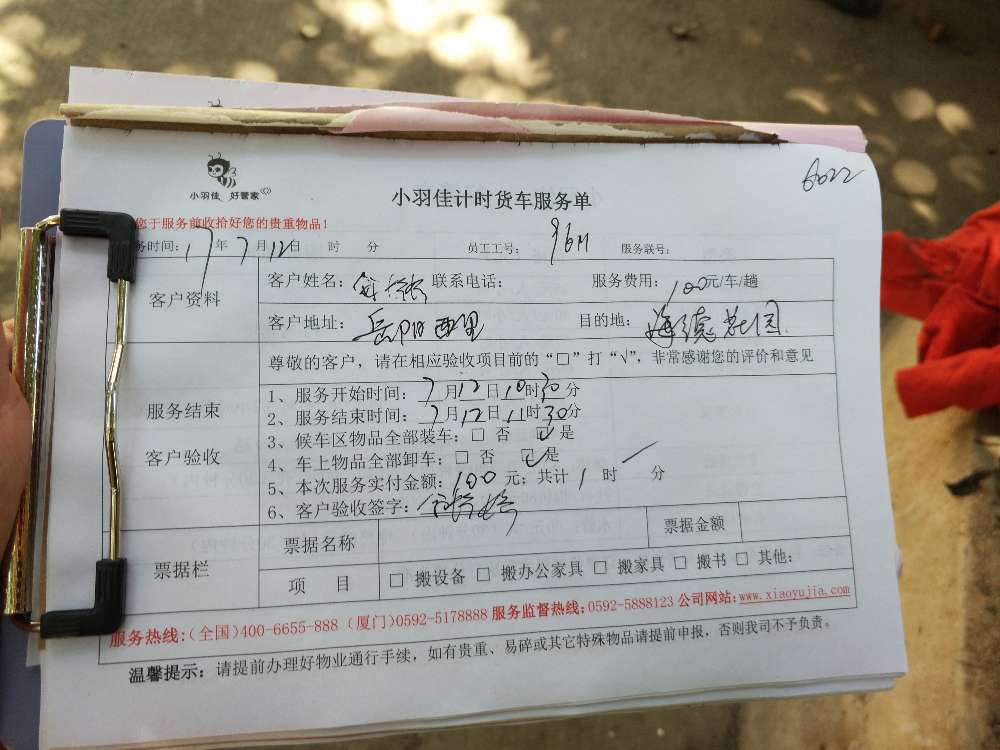 6022
小羽佳 好管家
小羽佳计时货车服务单
您于服务前收拾好您的贵重物品！
务时间：17年7月12日 时 分 员工工号： 服务联号：
客户资料
客户姓名： 联系电话： 服务费用：100元/车/趟
客户地址：岳阳西里 目的地：海德花园
尊敬的客户，请在相应验收项目前的“□”打“√”，非常感谢您的评价和意见
服务结束
客户验收
1、服务开始时间：7月12日10时30分
2、服务结束时间：7月12日11时30分
3、候车区物品全部装车：□ 否 ☑ 是
4、车上物品全部卸车：□ 否 ☑ 是
5、本次服务实付金额：100元；共计1时 分
6、客户验收签字：
票据栏
票据名称 票据金额
项 目 □ 搬设备 □ 搬办公家具 □ 搬家具 □ 搬书 □ 其他：
服务热线:(全国)400-6655-888 (厦门)0592-5178888 服务监督热线:0592-5888123 公司网站:www.xiaoyujia.com
温馨提示：请提前办理好物业通行手续，如有贵重、易碎或其它特殊物品请提前申报，否则我司不予负责。